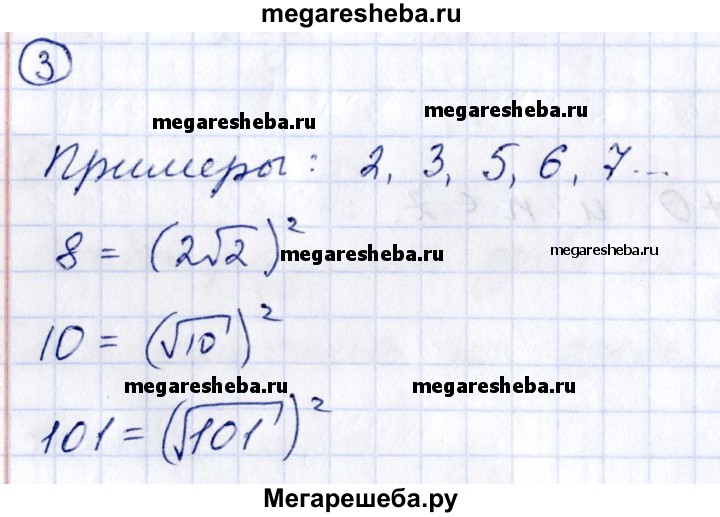 megaresheba.ru
3
megaresheba.ru
megaresheba.ru
Примеры: 2, 3, 5, 6, 7...
8 = (2√2)²
megaresheba.ru
megaresheba.ru
10 = (√10)²
megaresheba.ru
megaresheba.ru
101 = (√101)²
Мегарешеба.ру